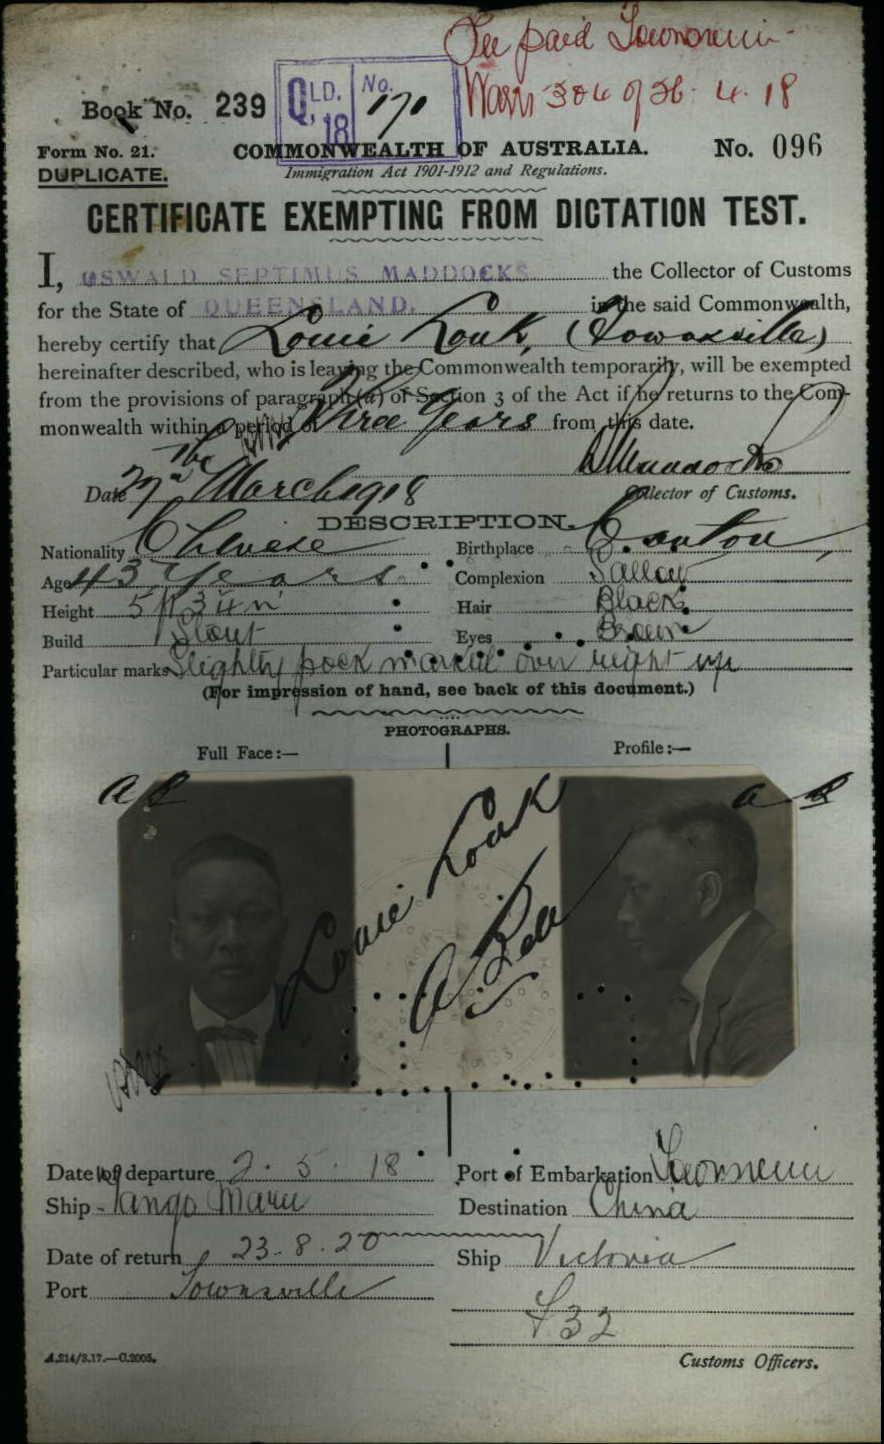 Fee paid Townsville
304 of 26.4.18
Book No. 239
QLD. No.
18 171
Form No. 21.
COMMONWEALTH OF AUSTRALIA.
No. 096
DUPLICATE.
Immigration Act 1901-1912 and Regulations.
CERTIFICATE EXEMPTING FROM DICTATION TEST.
I, OSWALD SEPTIMUS MADDOCKS the Collector of Customs
for the State of QUEENSLAND. in the said Commonwealth,
hereby certify that Louie Louk, (Townsville)
hereinafter described, who is leaving the Commonwealth temporarily, will be exempted
from the provisions of paragraph (a) of Section 3 of the Act if he returns to the Com-
monwealth within a period of Three Years from this date.
Date 27th March 1918
Collector of Customs.
DESCRIPTION.
Nationality Chinese Birthplace Canton
Age 43 years. Complexion Sallow
Height 5 ft 3¼ in Hair Black
Build Stout Eyes Brown
Particular marks Slightly pock marked over right
(For impression of hand, see back of this document.)
PHOTOGRAPHS.
Full Face:— Profile:—
Louie Louk
Date of departure 2.5.18 Port of Embarkation Townsville
Ship Tango Maru Destination China
Date of return 23.8.20 Ship Victoria
Port Townsville
32
A.214/3.17.—C.2005. Customs Officers.